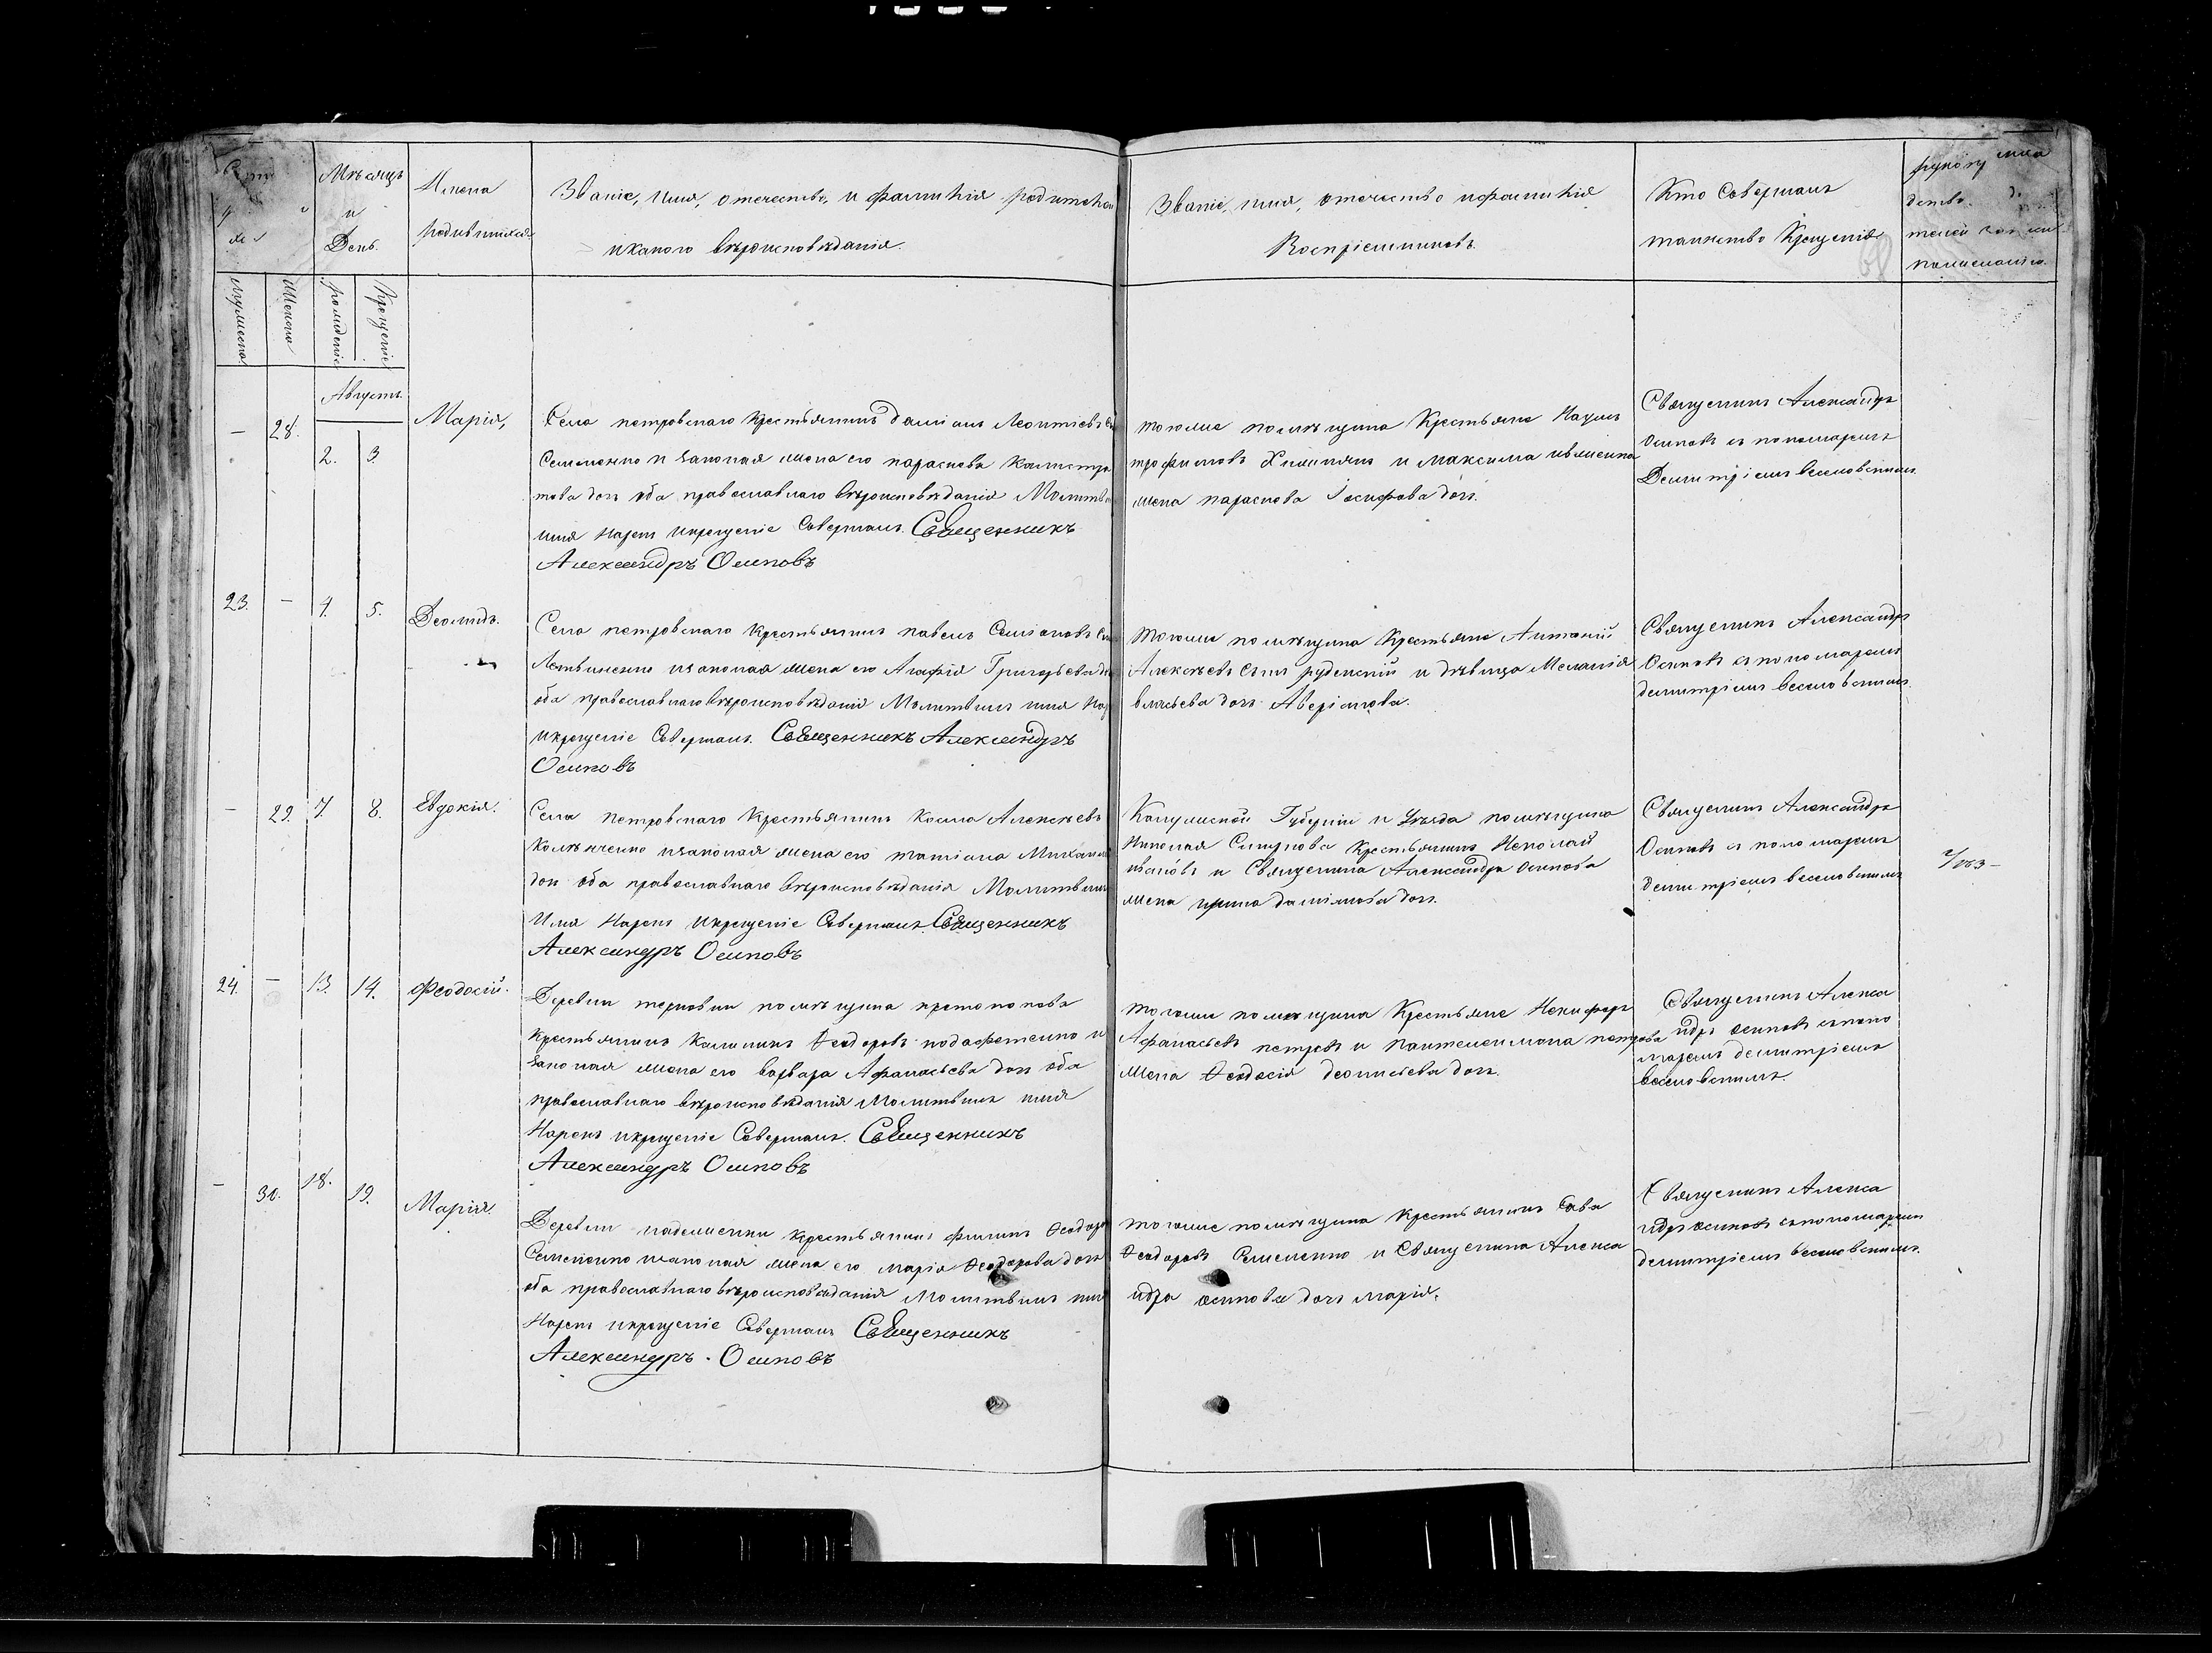 Мѣсяцъ
и
День.
Имена
родившихся
Званіе, имя, отечество, и фамилія родителей
и какого вѣроисповѣданія.
Званіе, имя, отечество и фамилія
Воспріемниковъ.
Кто Совершалъ
таинство Крещенія
рукопри
мужеска
женска
рожденіе
Крещеніе
Августъ
28.
2. 3.
Марія,
Села петровскаго Крестьянинъ даміанъ Леонтіевъ
Семененко и законная жена его параскева Калистра
това дочь оба православнаго вѣроисповѣданія Молитв
имя Нарекъ и крещеніе Совершалъ. Священникъ
Александръ Осиповъ
тогоже помѣщика Крестьяне Наумъ
трофимовъ и максима
жена параскева Іосифова доч.
Священникъ Александръ
Осиповъ съ пономаремъ
Димитріемъ Веселовскимъ
23. — 4. 5.
Деомидъ.
Села петровскаго Крестьянинъ павелъ
и законная жена его Агафія Григорьева
оба православнаго вѣроисповѣданія Молитвилъ имя
и крещеніе Совершалъ. Священникъ Александръ
Осиповъ
тогоже помѣщика Крестьяне Антоній
Алексѣевъ сынъ руденскій и дѣвица Меланія
власьева доч. Аверіанова.
Священникъ Александръ
Осиповъ съ пономаремъ
димитріемъ веселовскимъ.
— 29. 7. 8.
Евдокія.
Села Петровскаго Крестьянинъ Косма Алексѣевъ
и законная жена его татіана
доч оба православнаго вѣроисповѣданія Молитвилъ
Имя Нарекъ и крещеніе Совершалъ Священникъ
Александръ Осиповъ
Калужской Губерніи и уѣзда помѣщика
Николая Смирнова Крестьянинъ Неколай
ивановъ и Священника Александра Осипова
жена ирина даміанова доч.
Священникъ Александръ
Осиповъ съ пономаремъ
димитріемъ веселовскимъ
24. — 13. 14.
Феодосій.
Деревни терновки помѣщика протопопова
Крестьянинъ Калиникъ Ѳеодоровъ и
законная жена его варвара Афанасьева доч оба
православнаго вѣроисповѣданія Молитвилъ имя
Нарекъ и крещеніе Совершалъ. Священникъ
Александръ Осиповъ
тогоже помѣщика Крестьяне Некифоръ
Афанасьевъ петровъ и пантелеимона петрова
жена Ѳеодосія деонисьева доч.
Священникъ Алекса
ндръ осиповъ съ поно
маремъ димитріемъ
веселовскимъ.
— 30. 18. 19.
Марія.
Деревни надежевки Крестьянинъ филипъ Ѳеодоро
Семененко и законная жена его марія Ѳеодорова доч
оба православнаго вѣроисповѣданія Молитвилъ имя
Нарекъ и крещеніе Совершалъ Священникъ
Александръ. Осиповъ
тогоже помѣщика Крестьянинъ Сава
Ѳеодоровъ Семененко и Священника Алекса
ндра осипова доч марія.
Священникъ Алекса
ндръ осиповъ съ пономаремъ
димитріемъ веселовскимъ.